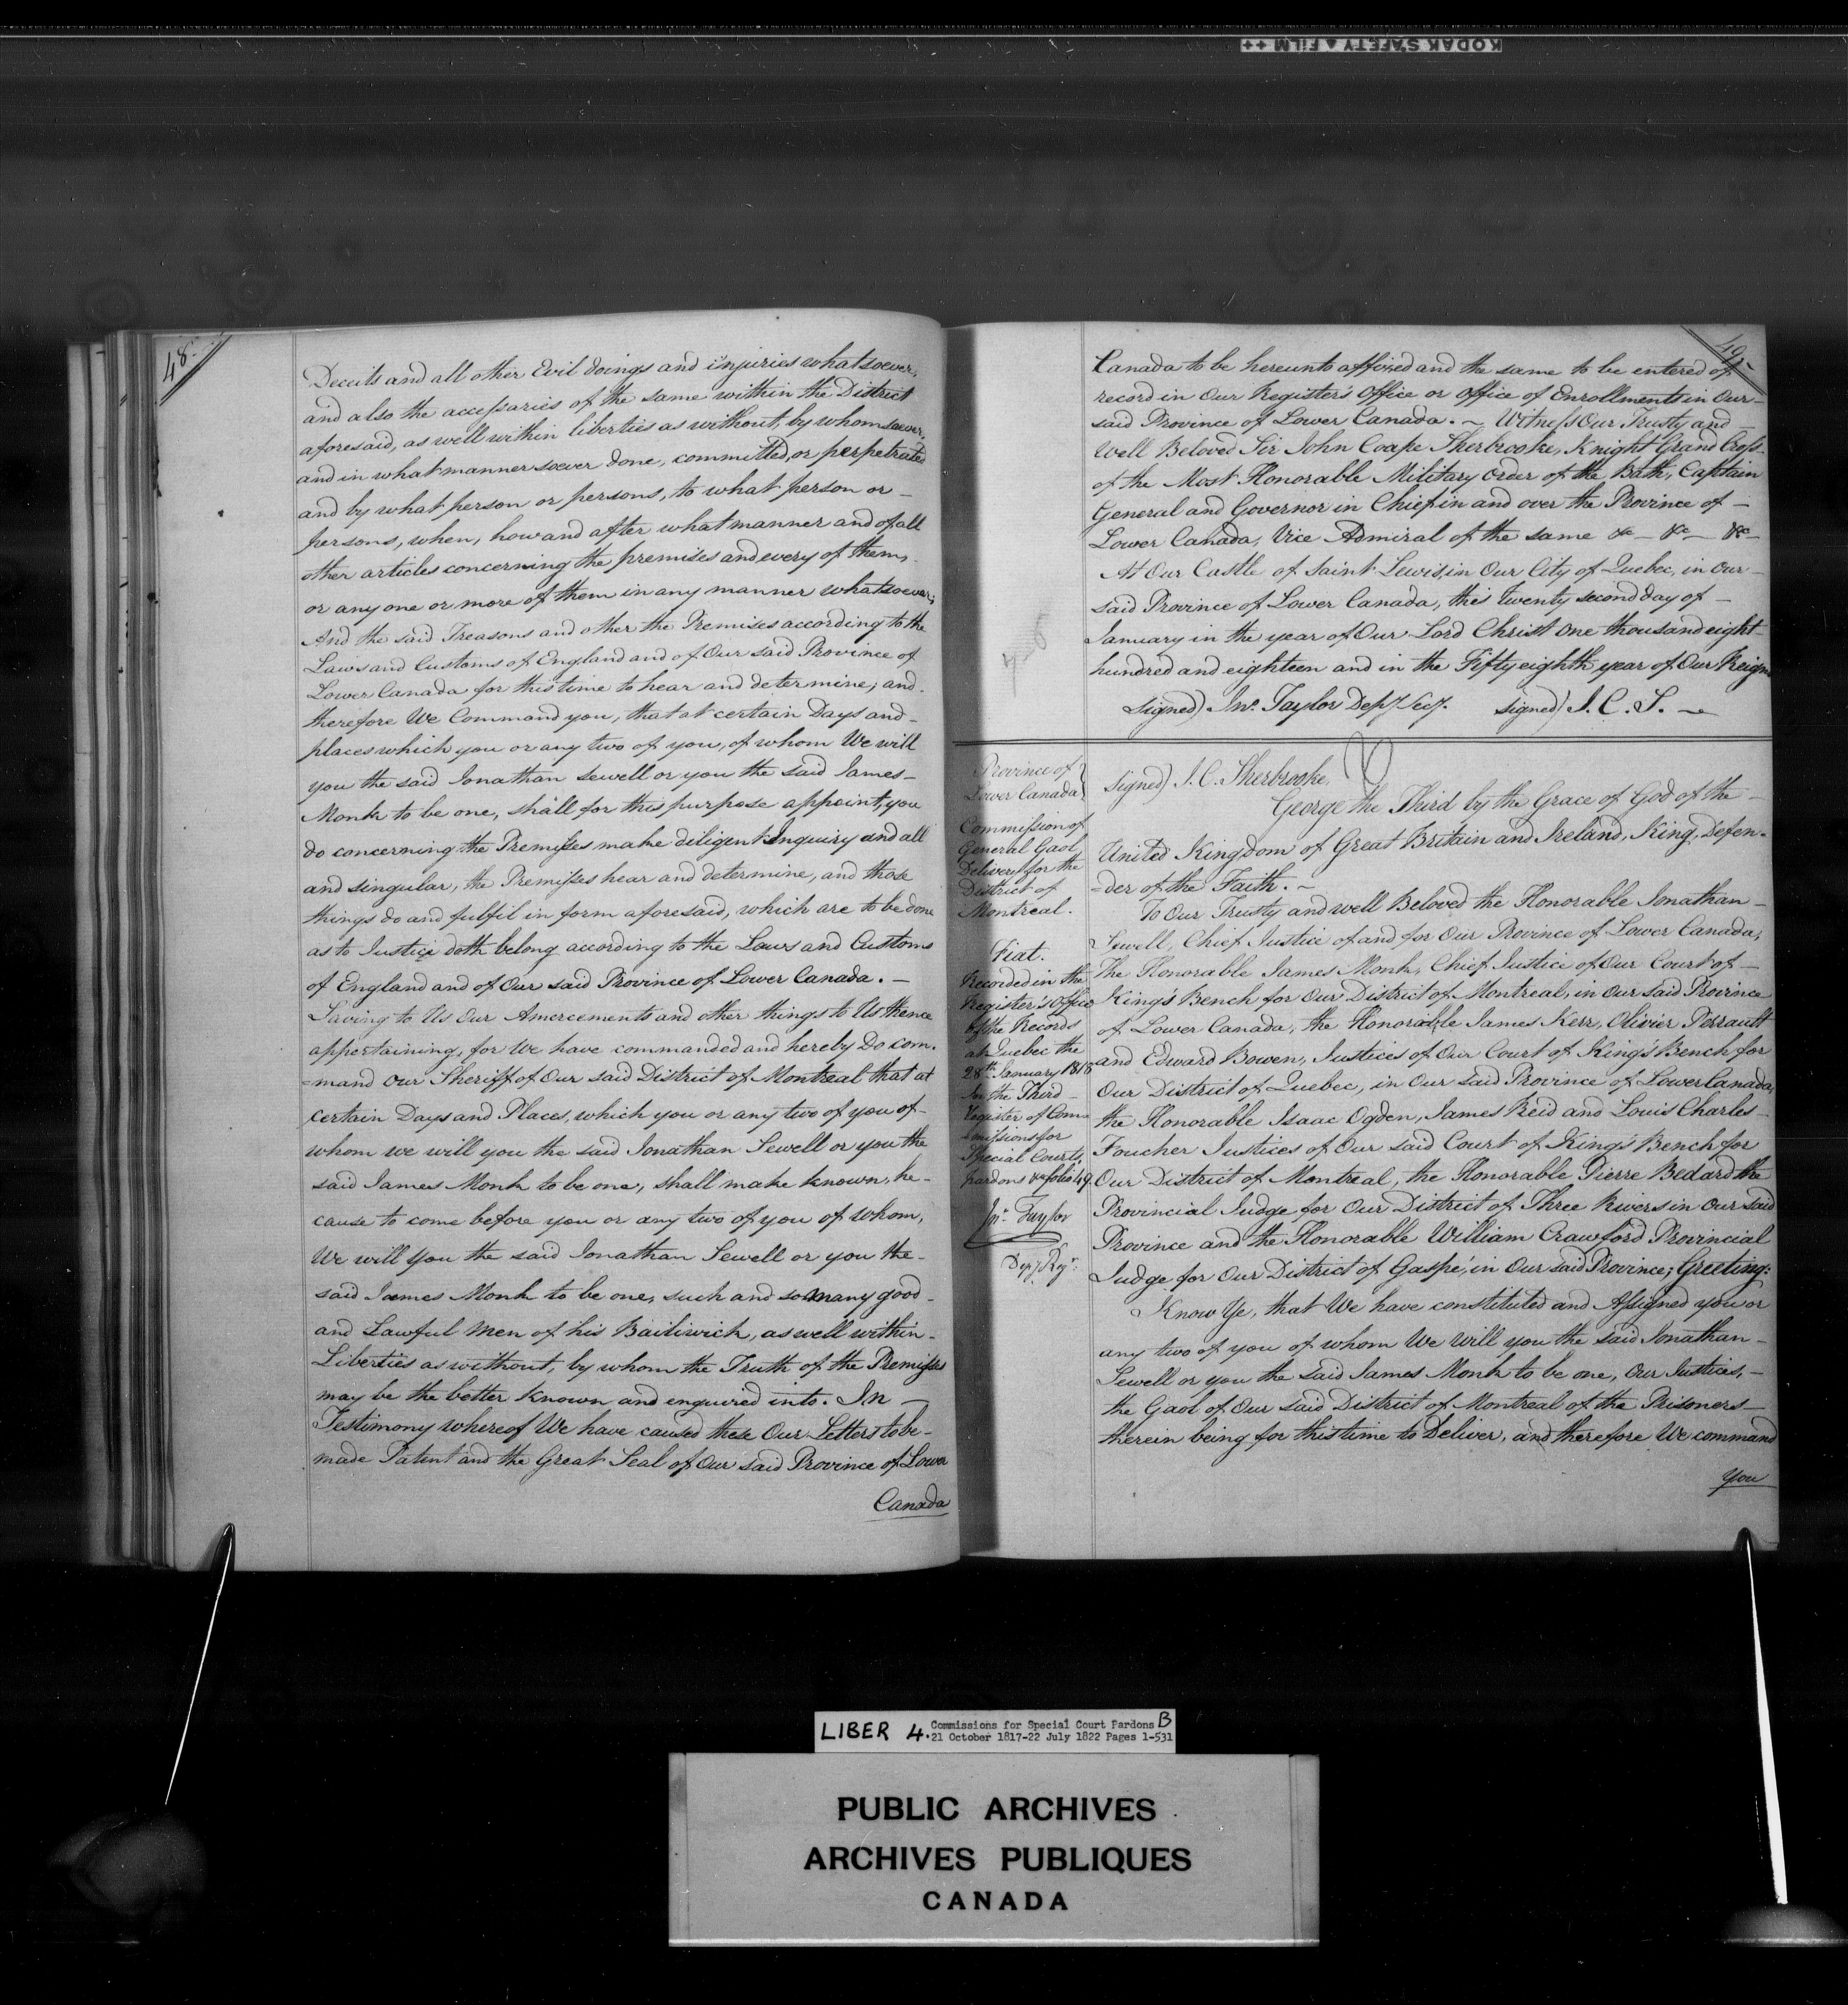 KODAK SAFETY ▲ FILM ++
48.
Deceits and all other Evil doings and injuries whatsoever,
and also the accessaries of the same within the District
aforesaid, as well within liberties as without, by whomsoever,
and in what manner soever done, committed, or perpetrated
and by what person or persons, to what person or –
persons, when, how and after what manner and of all
other articles concerning the premises and every of them,
or any one or more of them in any manner whatsoever;
And the said Treasons and other the Premises according to the
Laws and Customs of England and of Our said Province of
Lower Canada for this time to hear and determine; and –
therefore We Command you, that at certain Days and –
places which you or any two of you, of whom We will
you the said Jonathan Sewell or you the said James –
Monk to be one, shall for this purpose appoint, you
do concerning the Premisses make diligent Inquiry and all
and singular, the Premisses hear and determine, and those
things do and fulfil in form aforesaid, which are to be done
as to Justice doth belong according to the Laws and Customs
of England and of Our said Province of Lower Canada. –
Saving to Us Our Amercements and other things to Us thence
appertaining, for We have commanded and hereby Do com.
=mand our Sheriff of Our said District of Montreal that at
certain Days and Places, which you or any two of you of –
whom we will you the said Jonathan Sewell or you the
said James Monk to be one, shall make known, he –
cause to come before you or any two of you of whom,
We will you the said Jonathan Sewell or you the –
said James Monk to be one, such and so many good –
and Lawful Men of his Bailiwick, as well within –
Liberties as without, by whom the Truth of the Premisses
may be the better known and enquired into. In –
Testimony whereof We have caused these Our Letters to be –
made Patent and the Great Seal of Our said Province of Lower
Canada
49.
Canada to be hereunto affixed and the same to be entered of
record in Our Register's Office or office of Enrollments in Our –
said Province of Lower Canada. ~ Witness Our Trusty and –
Well Beloved Sir John Coape Sherbrooke, Knight Grand Cross
of the Most Honorable Military Order of the Bath, Captain
General and Governor in Chief in and over the Province of –
Lower Canada, Vice Admiral of the same &c – &c – &c –
At Our Castle of Saint Lewis, in Our City of Quebec, in Our –
said Province of Lower Canada, this twenty second day of –
January in the year of Our Lord Christ One thousand eight
hundred and eighteen and in the Fifty eighth year of Our Reign
Signed) Jno. Taylor Depy Secy. signed) J. C. S. –
Province of
Lower Canada
Commission of
General Gaol
Delivery for the
District of
Montreal.
Fiat.
Recorded in the
Register's Office
of the Records
at Quebec the
28th January 1818
In the Third –
Register of Com=
=missions for
Special Courts,
Pardons &c folio 49.
Jno. Taylor
Depy Regr.
Signed) J. C. Sherbrooke,
George the Third by the Grace of God of the –
United Kingdom of Great Britain and Ireland, King, Defen-
=der of the Faith. ~
To Our Trusty and well Beloved the Honorable Jonathan –
Sewell, Chief Justice of and for Our Province of Lower Canada,
The Honorable James Monk, Chief Justice of Our Court of –
King's Bench for Our District of Montreal, in Our said Province
of Lower Canada, the Honorable James Kerr, Olivier Perrault
and Edward Bowen, Justices of Our Court of King's Bench for
Our District of Quebec, in Our said Province of Lower Canada,
the Honorable Isaac Ogden, James Reid and Louis Charles –
Foucher Justices of Our said Court of King's Bench for
Our District of Montreal, the Honorable Pierre Bedard the
Provincial Judge for Our District of Three Rivers in Our said
Province and the Honorable William Crawford Provincial
Judge for Our District of Gaspé, in Our said Province; Greeting:
Know Ye, that We have constituted and Assigned you or
any two of you of whom We Will you the said Jonathan –
Sewell or you the said James Monk to be one, Our Justices, –
the Gaol of Our said District of Montreal of the Prisoners –
therein being for this time to Deliver, and therefore We command
you
LIBER 4. Commissions for Special Court Pardons B
21 October 1817-22 July 1822 Pages 1-531
PUBLIC ARCHIVES
ARCHIVES PUBLIQUES
CANADA